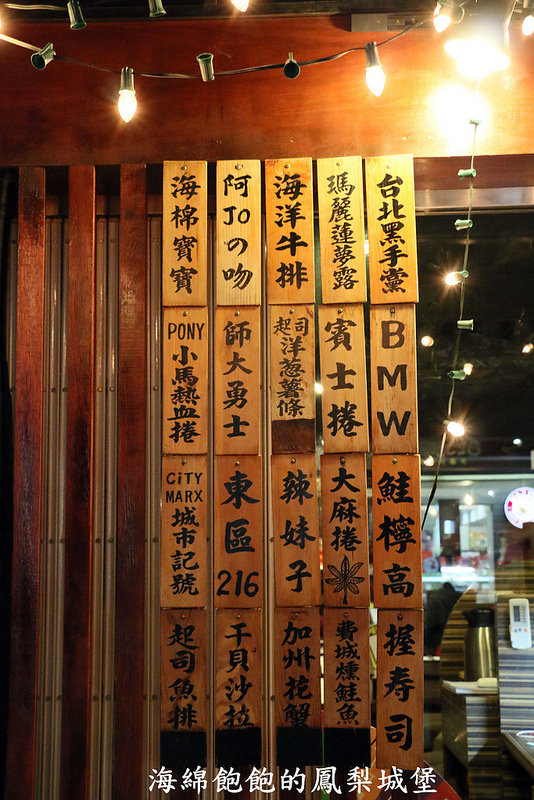 台北黑手黨
瑪麗蓮夢露
海洋牛排
阿JOの吻
海棉寶寶
BMW
賓士捲
起司洋葱薯條
師大勇士
PONY
小馬熱血捲
鮭檸高
大麻捲
辣妹子
東區216
CiTY
MARX
城市記號
握壽司
費城燻鮭魚
加州花蟹
干貝沙拉
起司魚排
海綿飽飽的鳳梨城堡